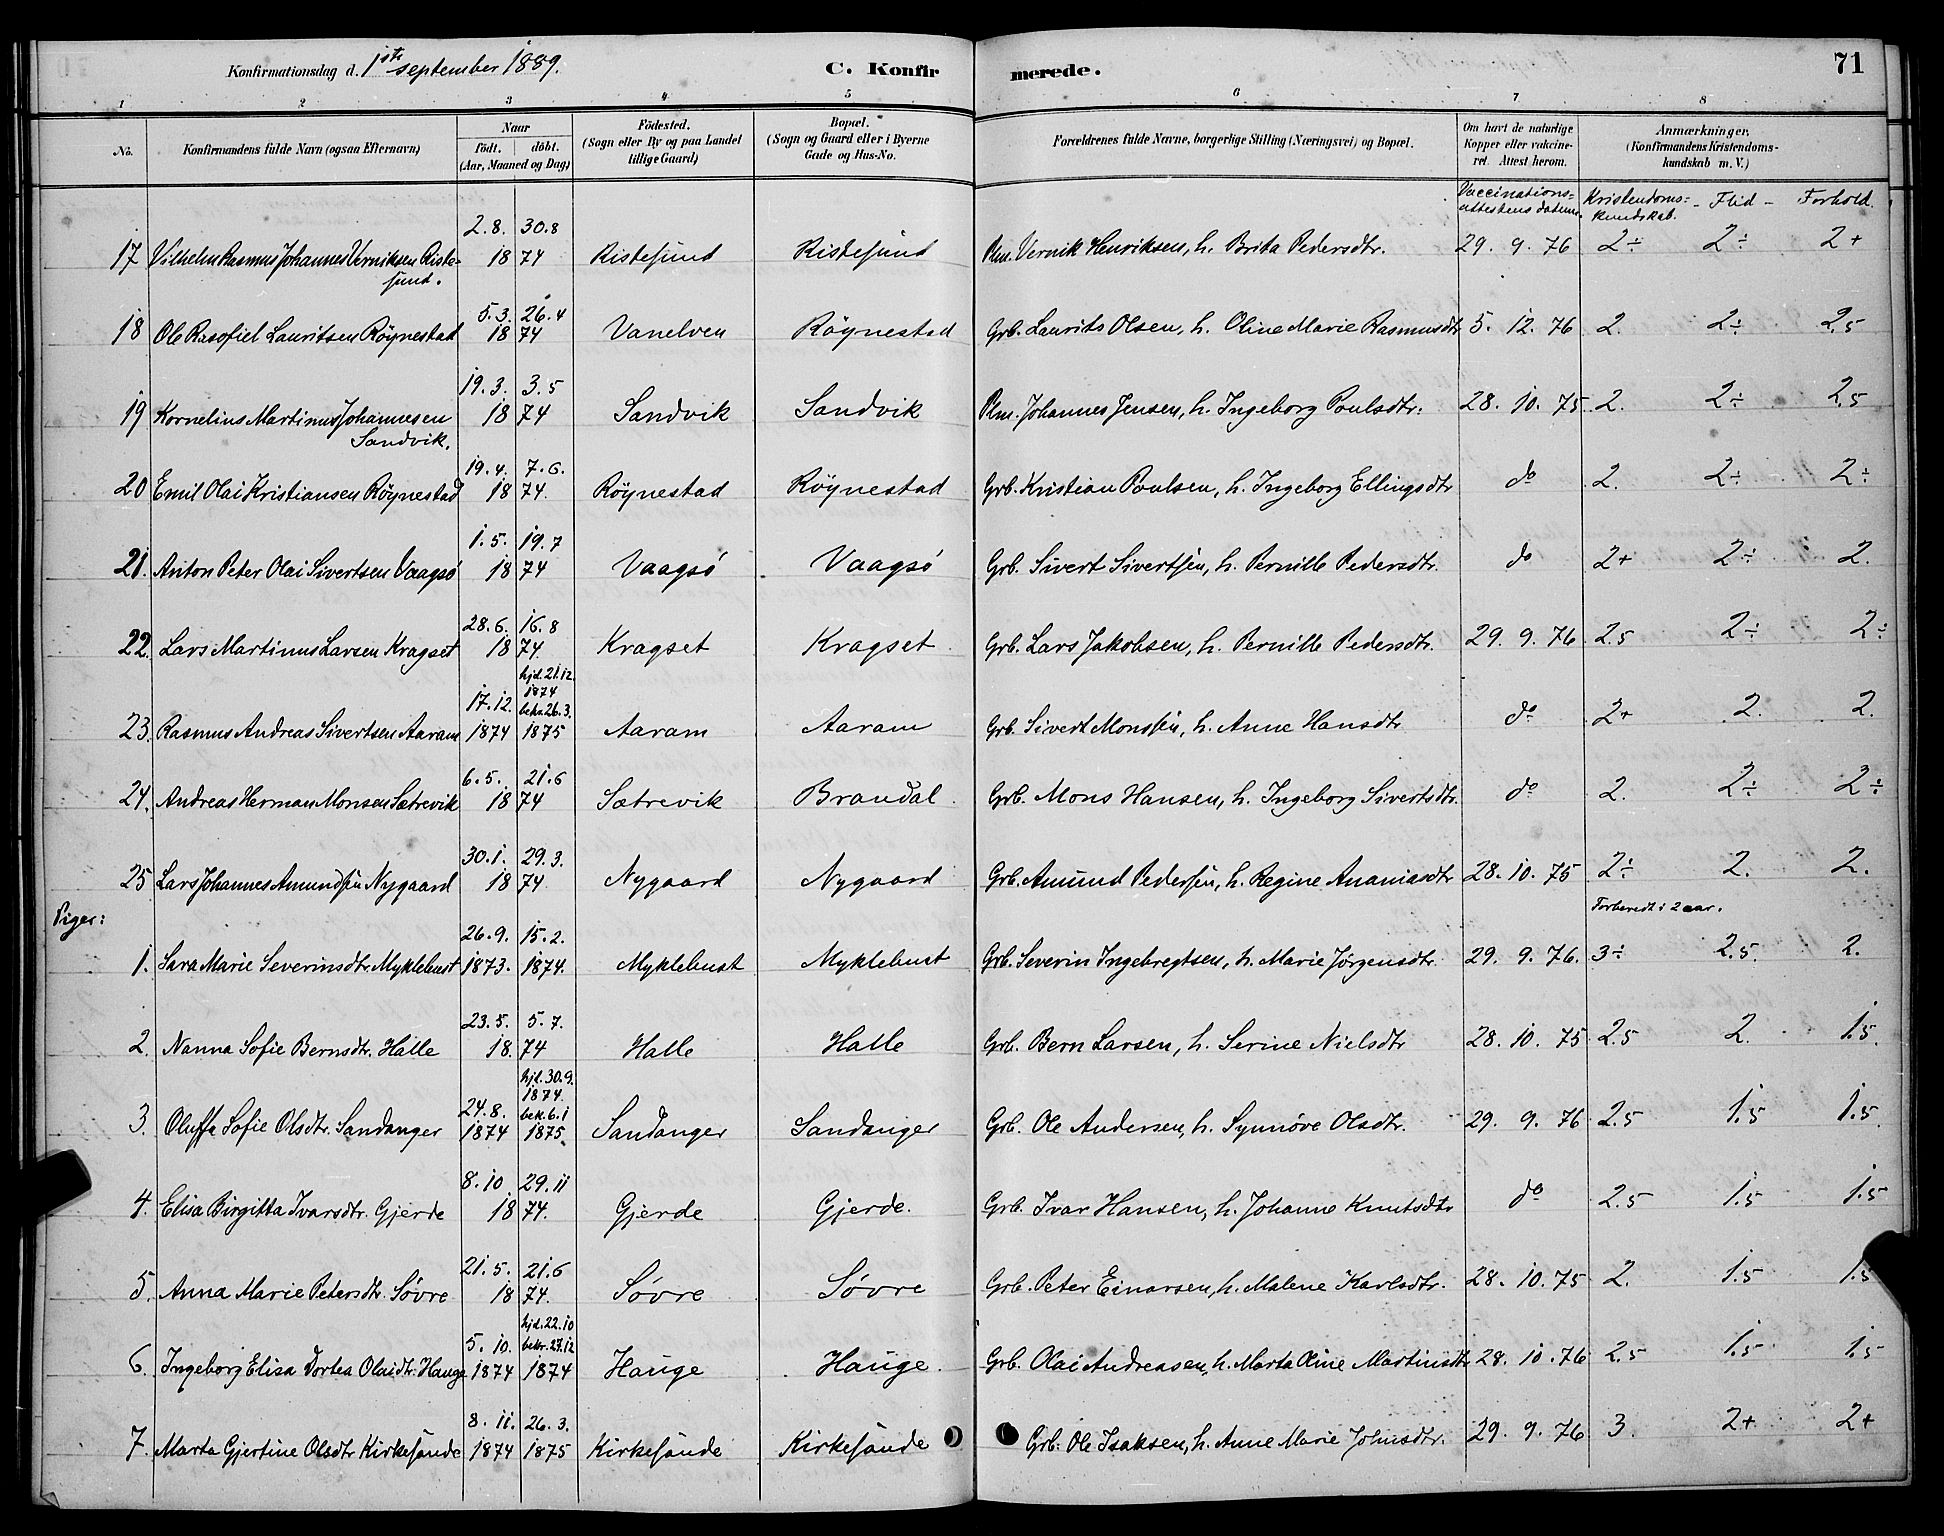 Konfirmationsdag d. 1ste september 1889. C. Konfirmerede. 71
1 2 3 4 5 6 7 8
No. Konfirmandens fulde Navn (ogsaa Efternavn) Naar födt. döbt. (Aar, Maaned og Dag) Födested. (Sogn eller By og paa Landet tillige Gaard) Bopæl. (Sogn og Gaard eller i Byerne Gade og Hus-No. Forældrenes fulde Navne, borgerlige Stilling (Næringsvei) og Bopæl. Om havt de naturlige Kopper eller vaccineret. Attest herom. Anmærkninger. (Konfirmandens Kristendomskundskab m. V.)
Vaccinations-attestens datum. Kristendoms-kundskab. - Flid - Forhold.
2.8. 30.8
17 Vilhelm Rasmus Johannes Verniksen Ristesund. 18 74 Ristesund Ristesund Plm. Vernik Henriksen, h. Brita Pedersdtr. 29. 9. 76 2÷ 2÷ 2+
5.3. 26.4
18 Ole Rasofiel Lauritsen Röynestad 18 74 Vanelven Röynestad Grb. Laurits Olsen, h. Oline Marie Rasmusdtr 5. 12. 76 2. 2÷ 2.5
19.3. 3.5
19 Kornelius Martinus Johannesen Sandvik. 18 74 Sandvik Sandvik Plm. Johannes Jensen, h. Ingeborg Poulsdtr. 28. 10. 75 2. 2÷ 2.5
19.4. 7.6.
20 Emil Olai Kristiansen Röynestad 18 74. Röynestad Röynestad Grb. Kristian Poulsen, h. Ingeborg Ellingsdtr do 2. 2÷ 2÷
1.5. 19.7
21. Anton Peter Olai Sivertsen Vaagsö 18 74 Vaagsö Vaagsö Grb. Sivert Sivertsen, h. Pernille Pedersdtr. do 2+ 2÷ 2.
28.6. 16.8
22. Lars Martinus Larsen Kragset 18 74. Kragset Kragset Grb. Lars Jakobsen, h. Pernille Pedersdtr. 29. 9. 76 2.5 2÷ 2÷
17.12. hjd. 21.12. 1874 bekr. 26.3.
23. Rasmus Andreas Sivertsen Aaram 1874 1875 Aaram Aaram Grb. Sivert Monsen, h. Anne Hansdtr do 2+ 2. 2.
6.5. 21.6
24. Andreas Herman Monsen Sætrevik 18 74 Sætrevik Brandal. Grb. Mons Hansen, h. Ingeborg Sivertsdtr. do 2. 2÷ 2÷
30.1. 29.3.
25 Lars Johannes Amundsen Nygaard 18 74. Nygaard Nygaard Grb. Amund Pedersen, h. Regine Ananiasdtr 28. 10. 75 2÷ 2. 2.
Piger: Forberedt i 2 aar.
26.9. 15.2.
1. Sara Marie Severinsdtr. Myklebust 1873. 1874. Myklebust Myklebust Grb. Severin Ingebregtsen, h. Marie Jörgensdtr. 29. 9. 76. 3÷ 2.5. 2.
23.5. 5.7.
2. Nanna Sofie Bernsdtr. Halle 18. 74 Halle Halle Grb. Bern Larsen, h. Serine Nielsdtr 28. 10. 75 2.5 2. 1.5.
24.8. hjd. 30.9. 1874. bek. 6.1
3. Oluffa Sofie Olsdtr. Sandanger 1874 1875. Sandanger Sandanger Grb. Ole Andersen, h. Synnöve Olsdtr. 29. 9. 76 2.5 1.5 1.5.
8.10 29.11
4. Elisa Birgitta Ivarsdtr. Gjerde 18 74. Gjerde Gjerde. Grb. Ivar Hansen, h. Johanne Knutsdtr do 2.5 1.5 1.5
21.5. 21.6
5. Anna Marie Petersdtr. Sövre 18 74. Sövre Sövre Grb. Peter Einarsen, h. Malene Karlsdtr. 28. 10. 75 2. 1.5 1.5
5.10. hjd. 22.10 bekr. 27.12
6. Ingeborg Elisa Dortea Olaidtr. Hauge 1874 1874 Hauge Hauge. Grb. Olai Andreasen, h. Marta Oline Martinsdtr 28. 10. 76 2.5 1.5 1.5
8.11. 26.3.
7. Marta Gjertine Olsdtr Kirkesunde 1874 1875 Kirkesunde Kirkesunde Grb. Ole Isaksen, h. Anne Marie Johnsdtr. 29. 9. 76 3. 2+ 2+